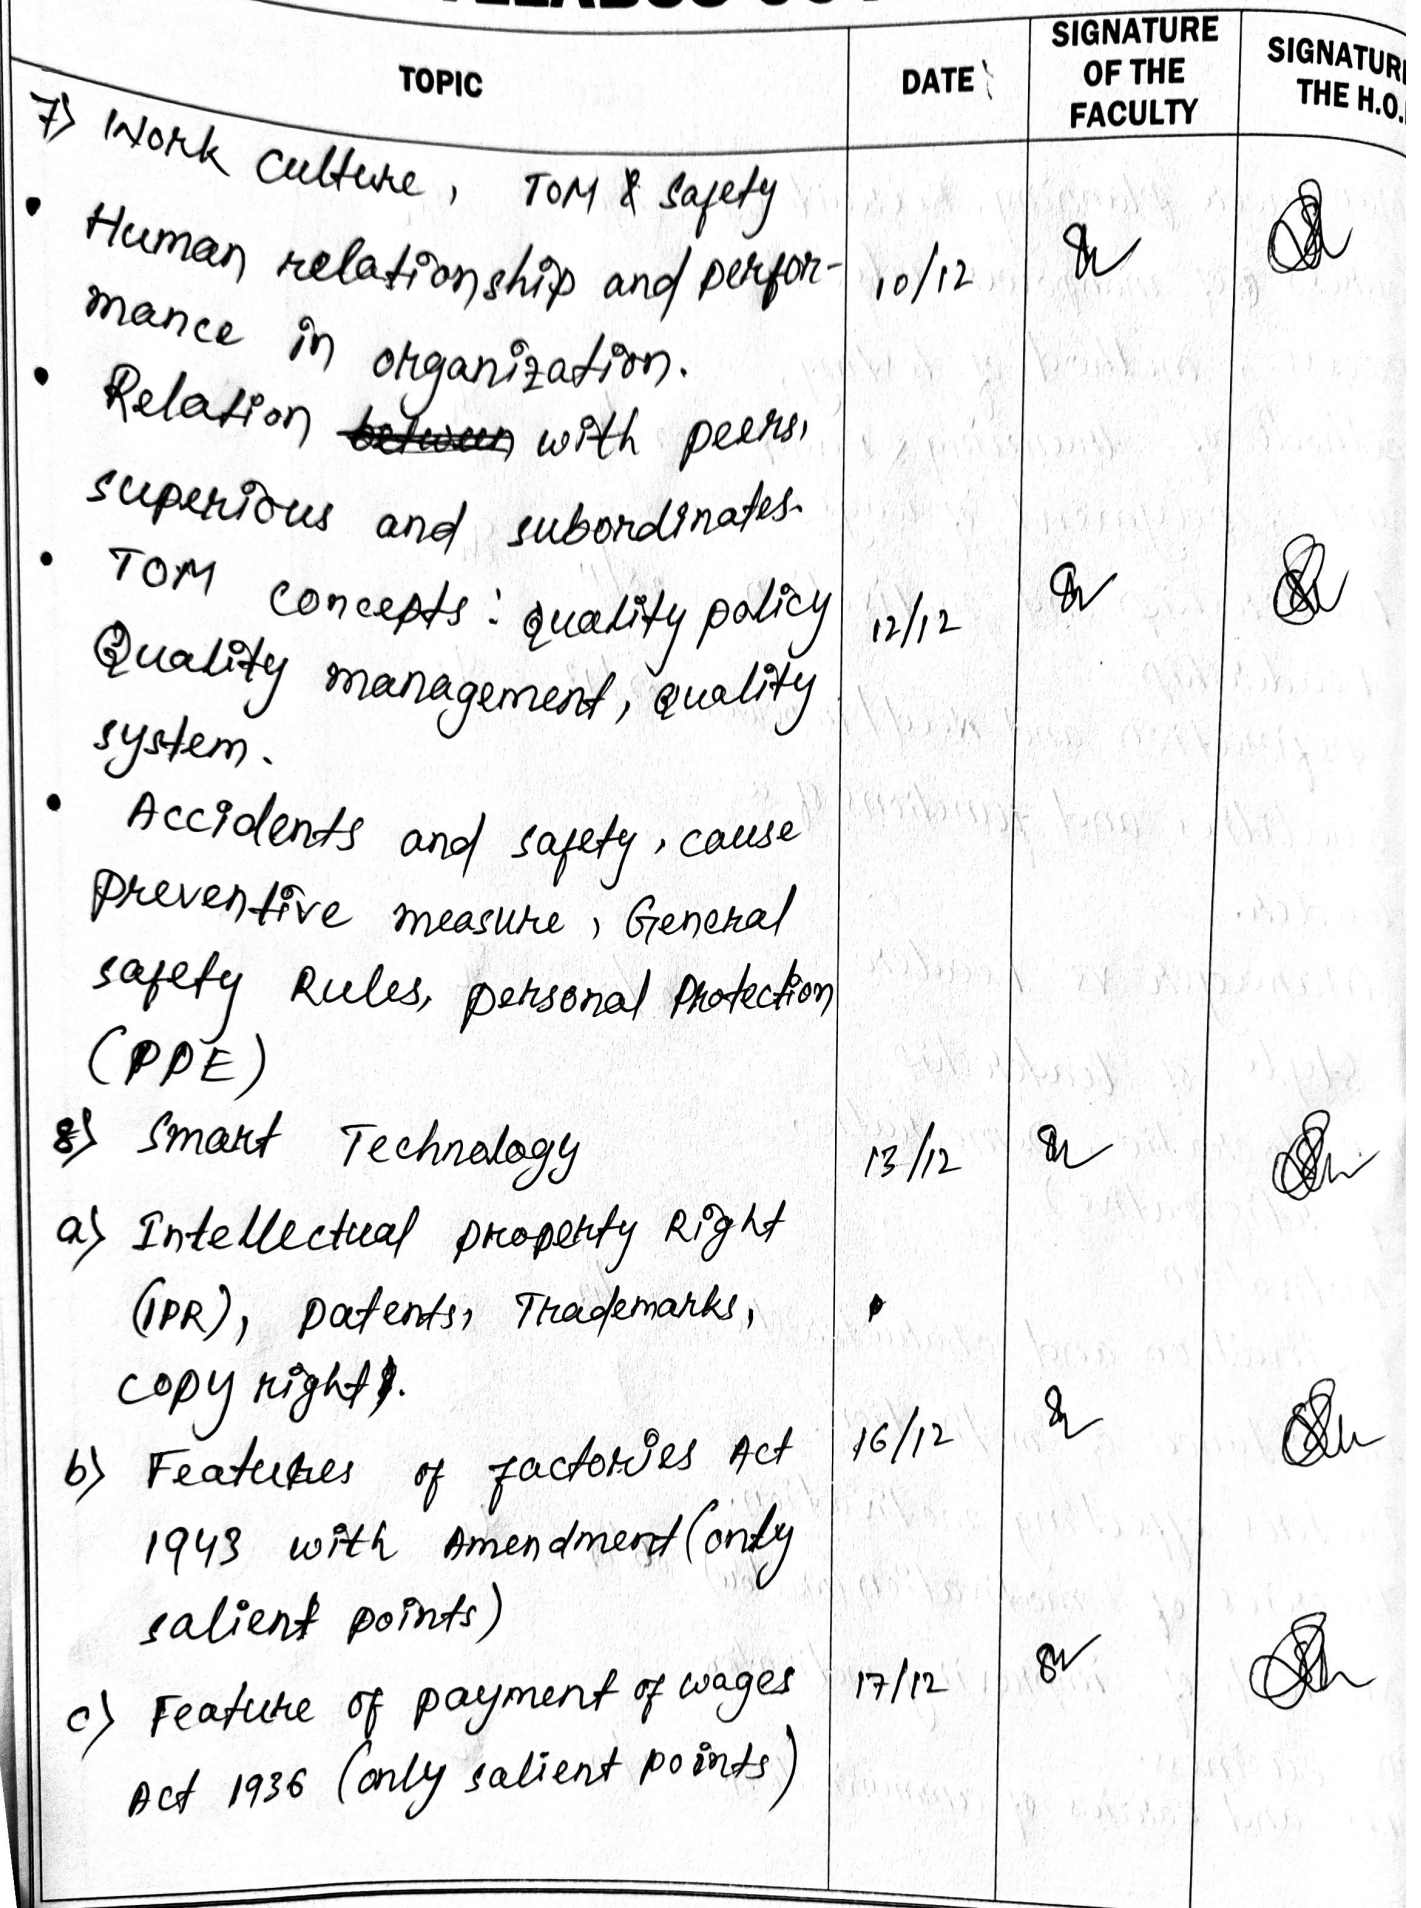 TOPIC DATE SIGNATURE OF THE FACULTY SIGNATURE THE H.O.
7) Work culture, TOM & Safety
• Human relationship and perfor- 10/12
mance in organization.
• Relation between with peers,
superious and subordinates.
• TOM concepts : quality policy 12/12
Quality management, quality
system.
• Accidents and safety, cause
preventive measure, General
safety Rules, personal Protection
(PPE)
8) Smart Technology 13/12
a) Intellectual property Right
(IPR), Patents, Trademarks,
copy right.
b) Features of factories Act 16/12
1943 with Amendment (only
salient points)
c) Feature of payment of wages 17/12
Act 1936 (only salient points)